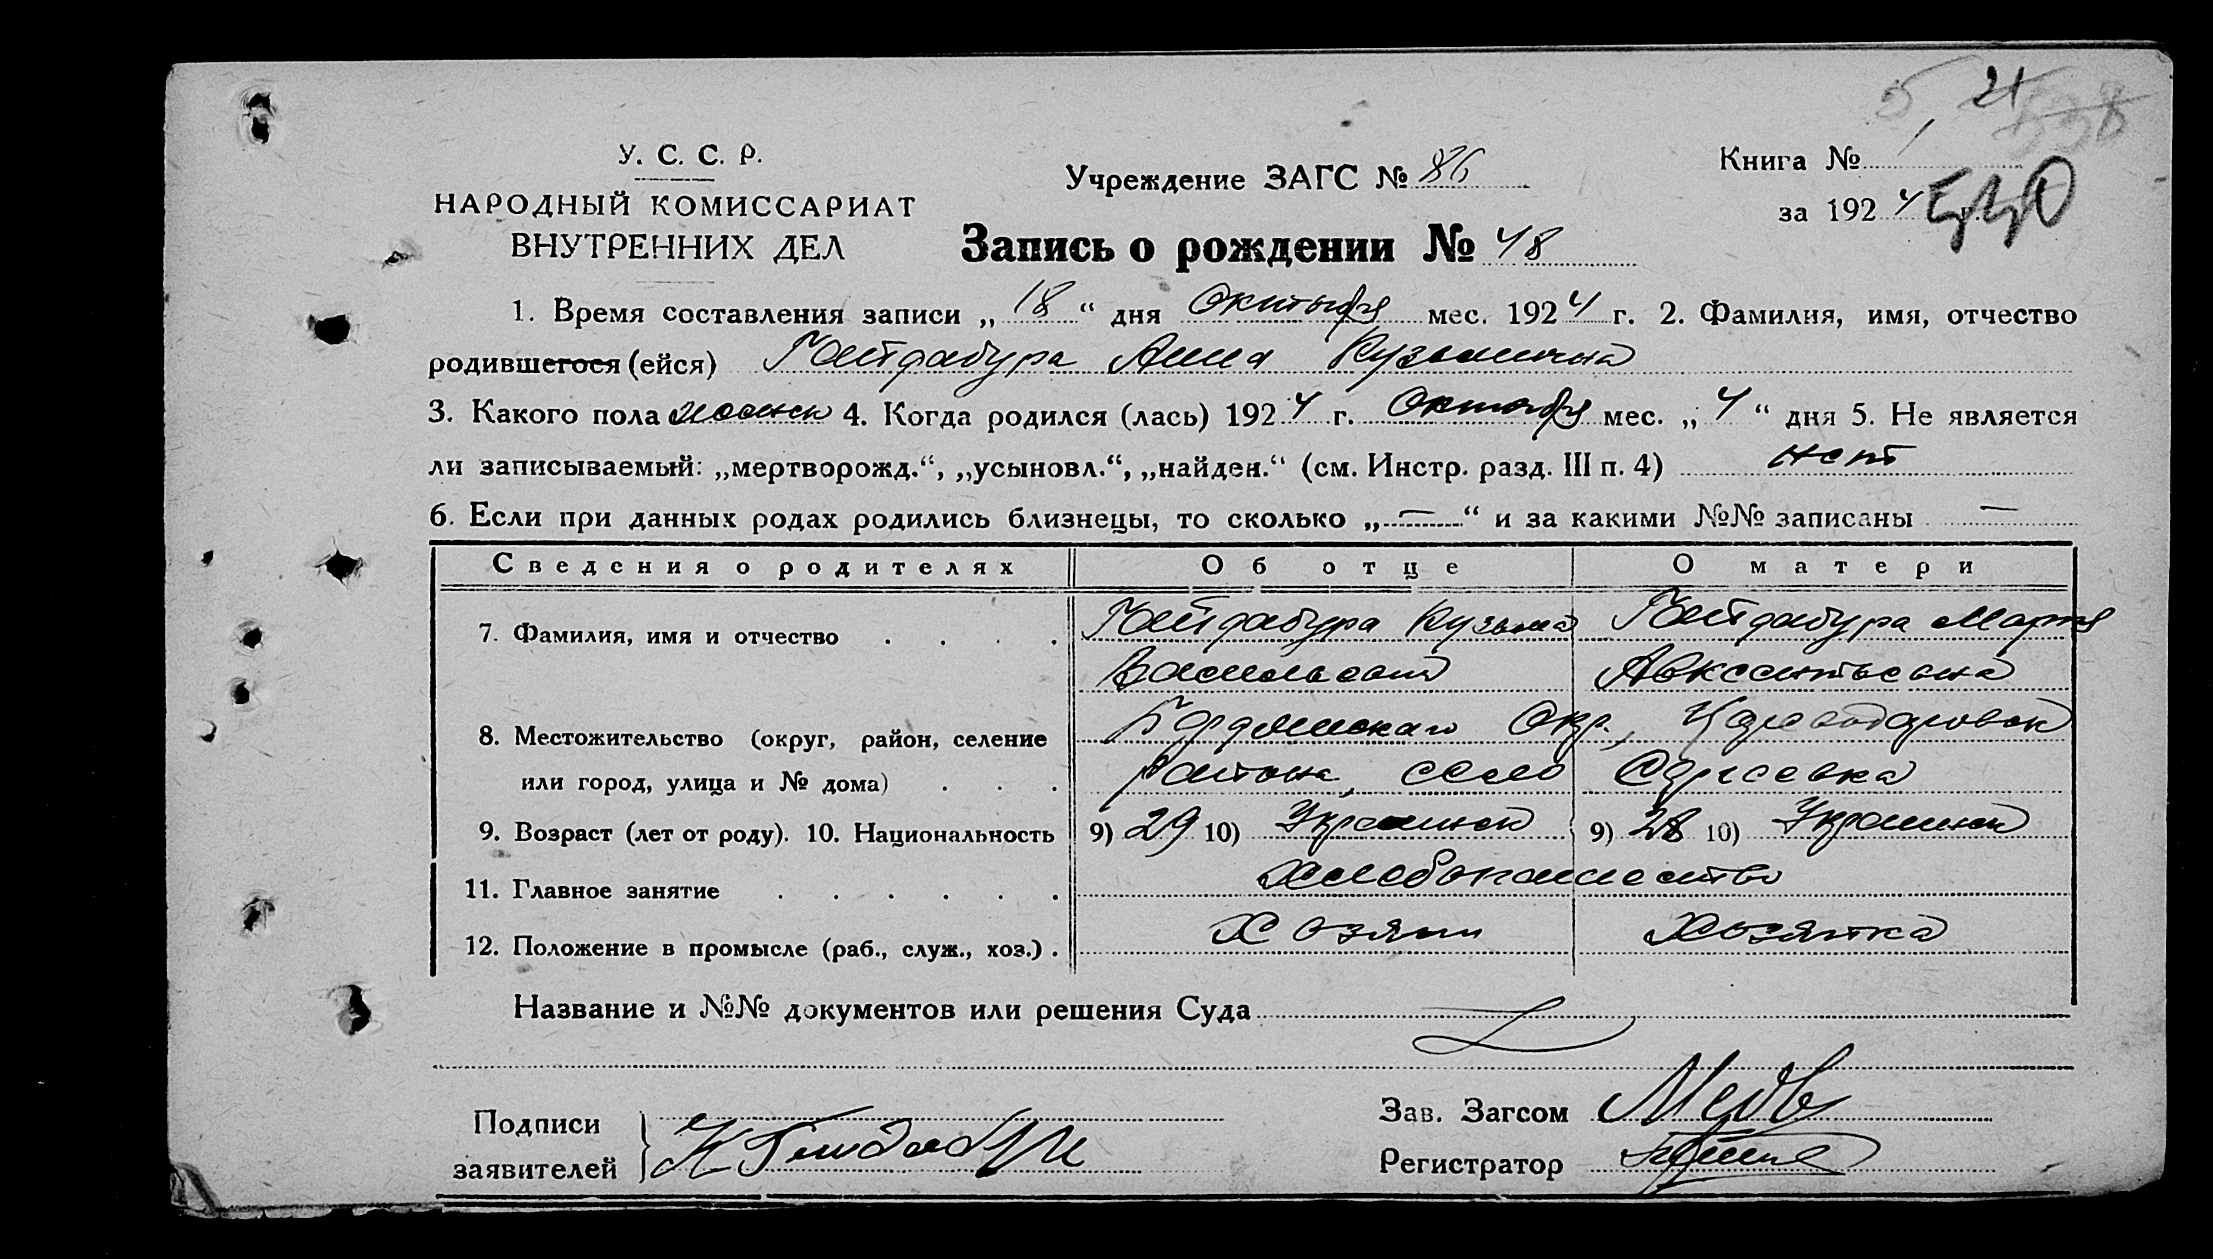 5 21 538
У. С. С. Р.
НАРОДНЫЙ КОМИССАРИАТ
ВНУТРЕННИХ ДЕЛ
Учреждение ЗАГС № 86
Книга № 1
за 1924 г.
Запись о рождении № 48
1. Время составления записи „18“ дня Октября мес. 1924 г. 2. Фамилия, имя, отчество
родившегося (ейся) Гайдабура Анна Кузьминична
3. Какого пола женск 4. Когда родился (лась) 1924 г. Октября мес. „4“ дня 5. Не является
ли записываемый: „мертворожд.“, „усыновл.“, „найден.“ (см. Инстр. разд. III п. 4) нет
6. Если при данных родах родились близнецы, то сколько „—“ и за какими №№ записаны —
Сведения о родителях Об отце О матери
7. Фамилия, имя и отчество . . . . Гайдабура Кузьма Гайдабура Мария
Васильевич Авксентьевна
8. Местожительство (округ, район, селение Бердянскаго Окр.,
или город, улица и № дома) . . . района, село Сергеевка
9. Возраст (лет от роду). 10. Национальность 9) 29 10) Украинск 9) 28 10) Украинск
11. Главное занятие . . . . . . Хлебопашество
12. Положение в промысле (раб., служ., хоз.) . Хозяин Хозяйка
Название и №№ документов или решения Суда
Подписи
заявителей К Гайдабура
Зав. Загсом
Регистратор